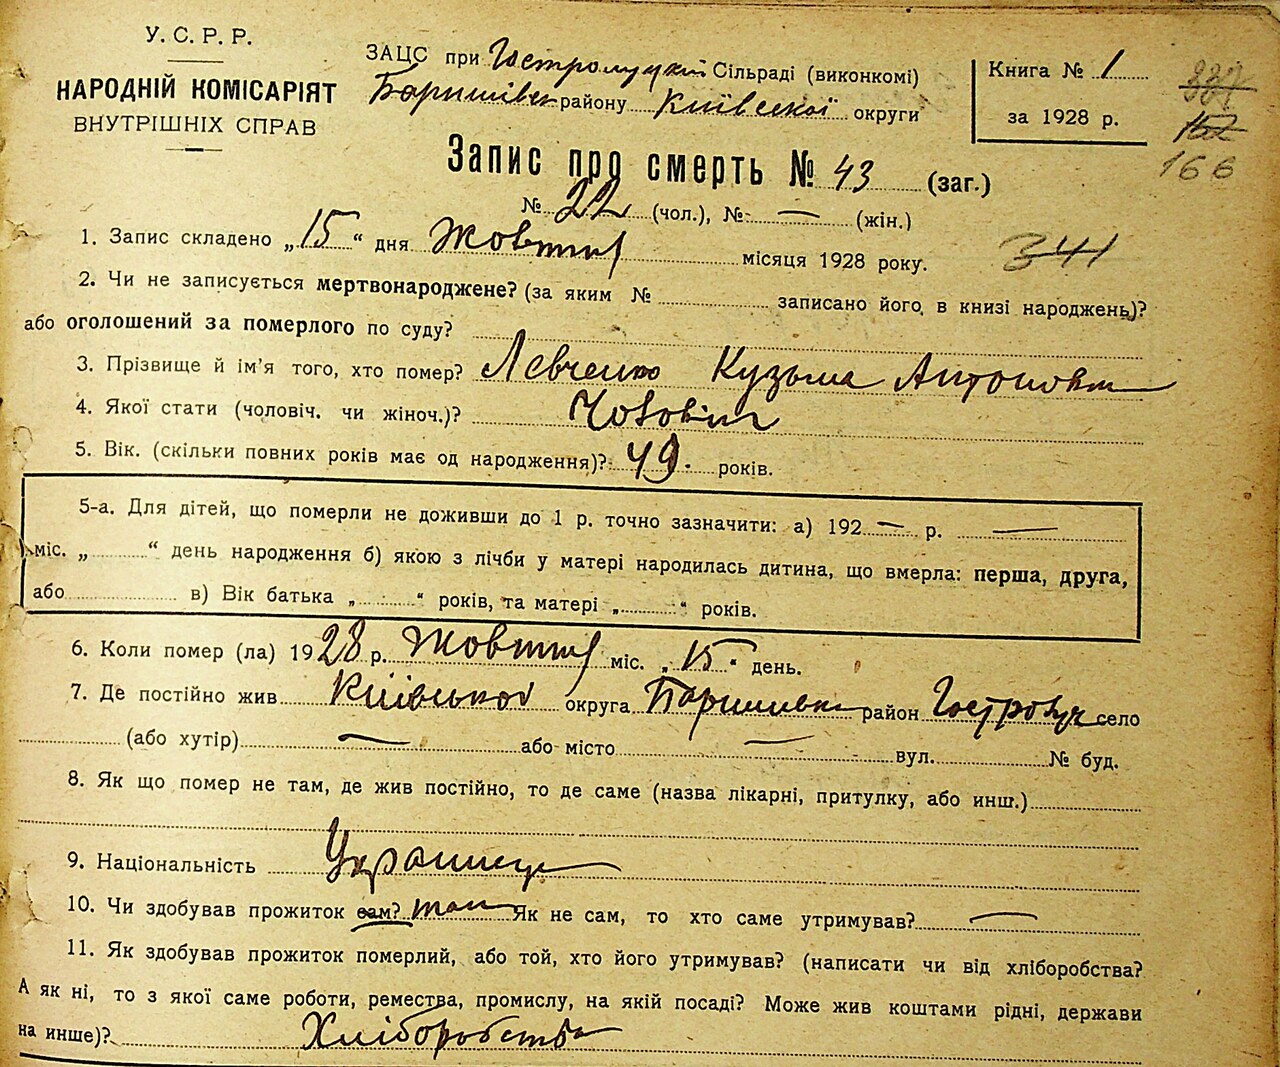 У. С. Р. Р.
НАРОДНІЙ КОМІСАРІЯТ
ВНУТРІШНІХ СПРАВ
ЗАЦС при Гостролуцкій Сільраді (виконкомі)
Баришівск району Київської округи
Книга № 1
за 1928 р.
337
157
166
Запис про смерть № 43 (заг.)
№ 22 (чол.), № — (жін.)
341
1. Запис складено „15" дня Жовтня місяця 1928 року.
2. Чи не записується мертвонароджене? (за яким № записано його, в книзі народжень)?
або оголошений за померлого по суду?
3. Прізвище й ім'я того, хто помер? Левченко Кузьма Антонович
4. Якої стати (чоловіч. чи жіноч.)? Чоловіч
5. Вік. (скільки повних років має од народження)? 49. років.
5-а. Для дітей, що померли не доживши до 1 р. точно зазначити: а) 192 — р. —
міс. „ " день народження б) якою з лічби у матері народилась дитина, що вмерла: перша, друга,
або в) Вік батька „ " років, та матері „ " років.
6. Коли помер (ла) 1928 р. Жовтня міс. „15" день.
7. Де постійно жив Київської округа Баришівка район Гостролуч село
(або хутір) — або місто — вул. № буд.
8. Як що помер не там, де жив постійно, то де саме (назва лікарні, притулку, або инш.)
9. Національність Украинець
10. Чи здобував прожиток сам? так Як не сам, то хто саме утримував? —
11. Як здобував прожиток померлий, або той, хто його утримував? (написати чи від хліборобства?
А як ні, то з якої саме роботи, ремества, промислу, на якій посаді? Може жив коштами рідні, держави
на инше)? Хліборобства